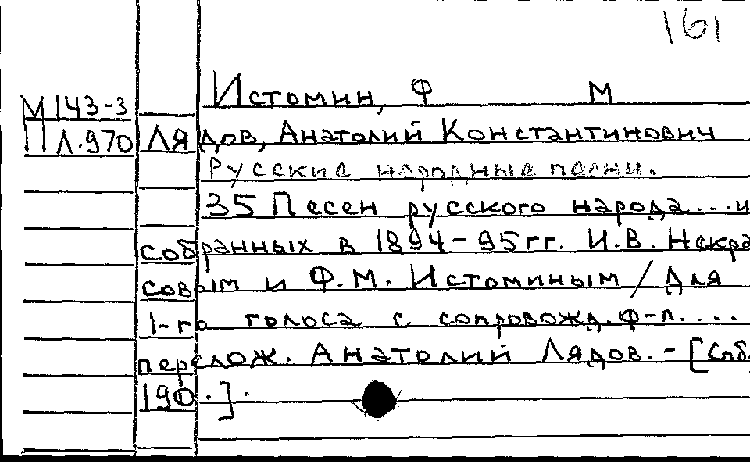 161
Истомин, Ф М
М 143-3
П Л.970 Лядов, Анатолий Константинович
Русские народные песни.
35 Песен русского народа...и
собранных в 1894-95гг. И.В. Некра
совым и Ф.М. Истоминым / Для
1-го голоса с сопровожд. ф-п....
перелож. Анатолий Лядов. - [Спб,
190.].